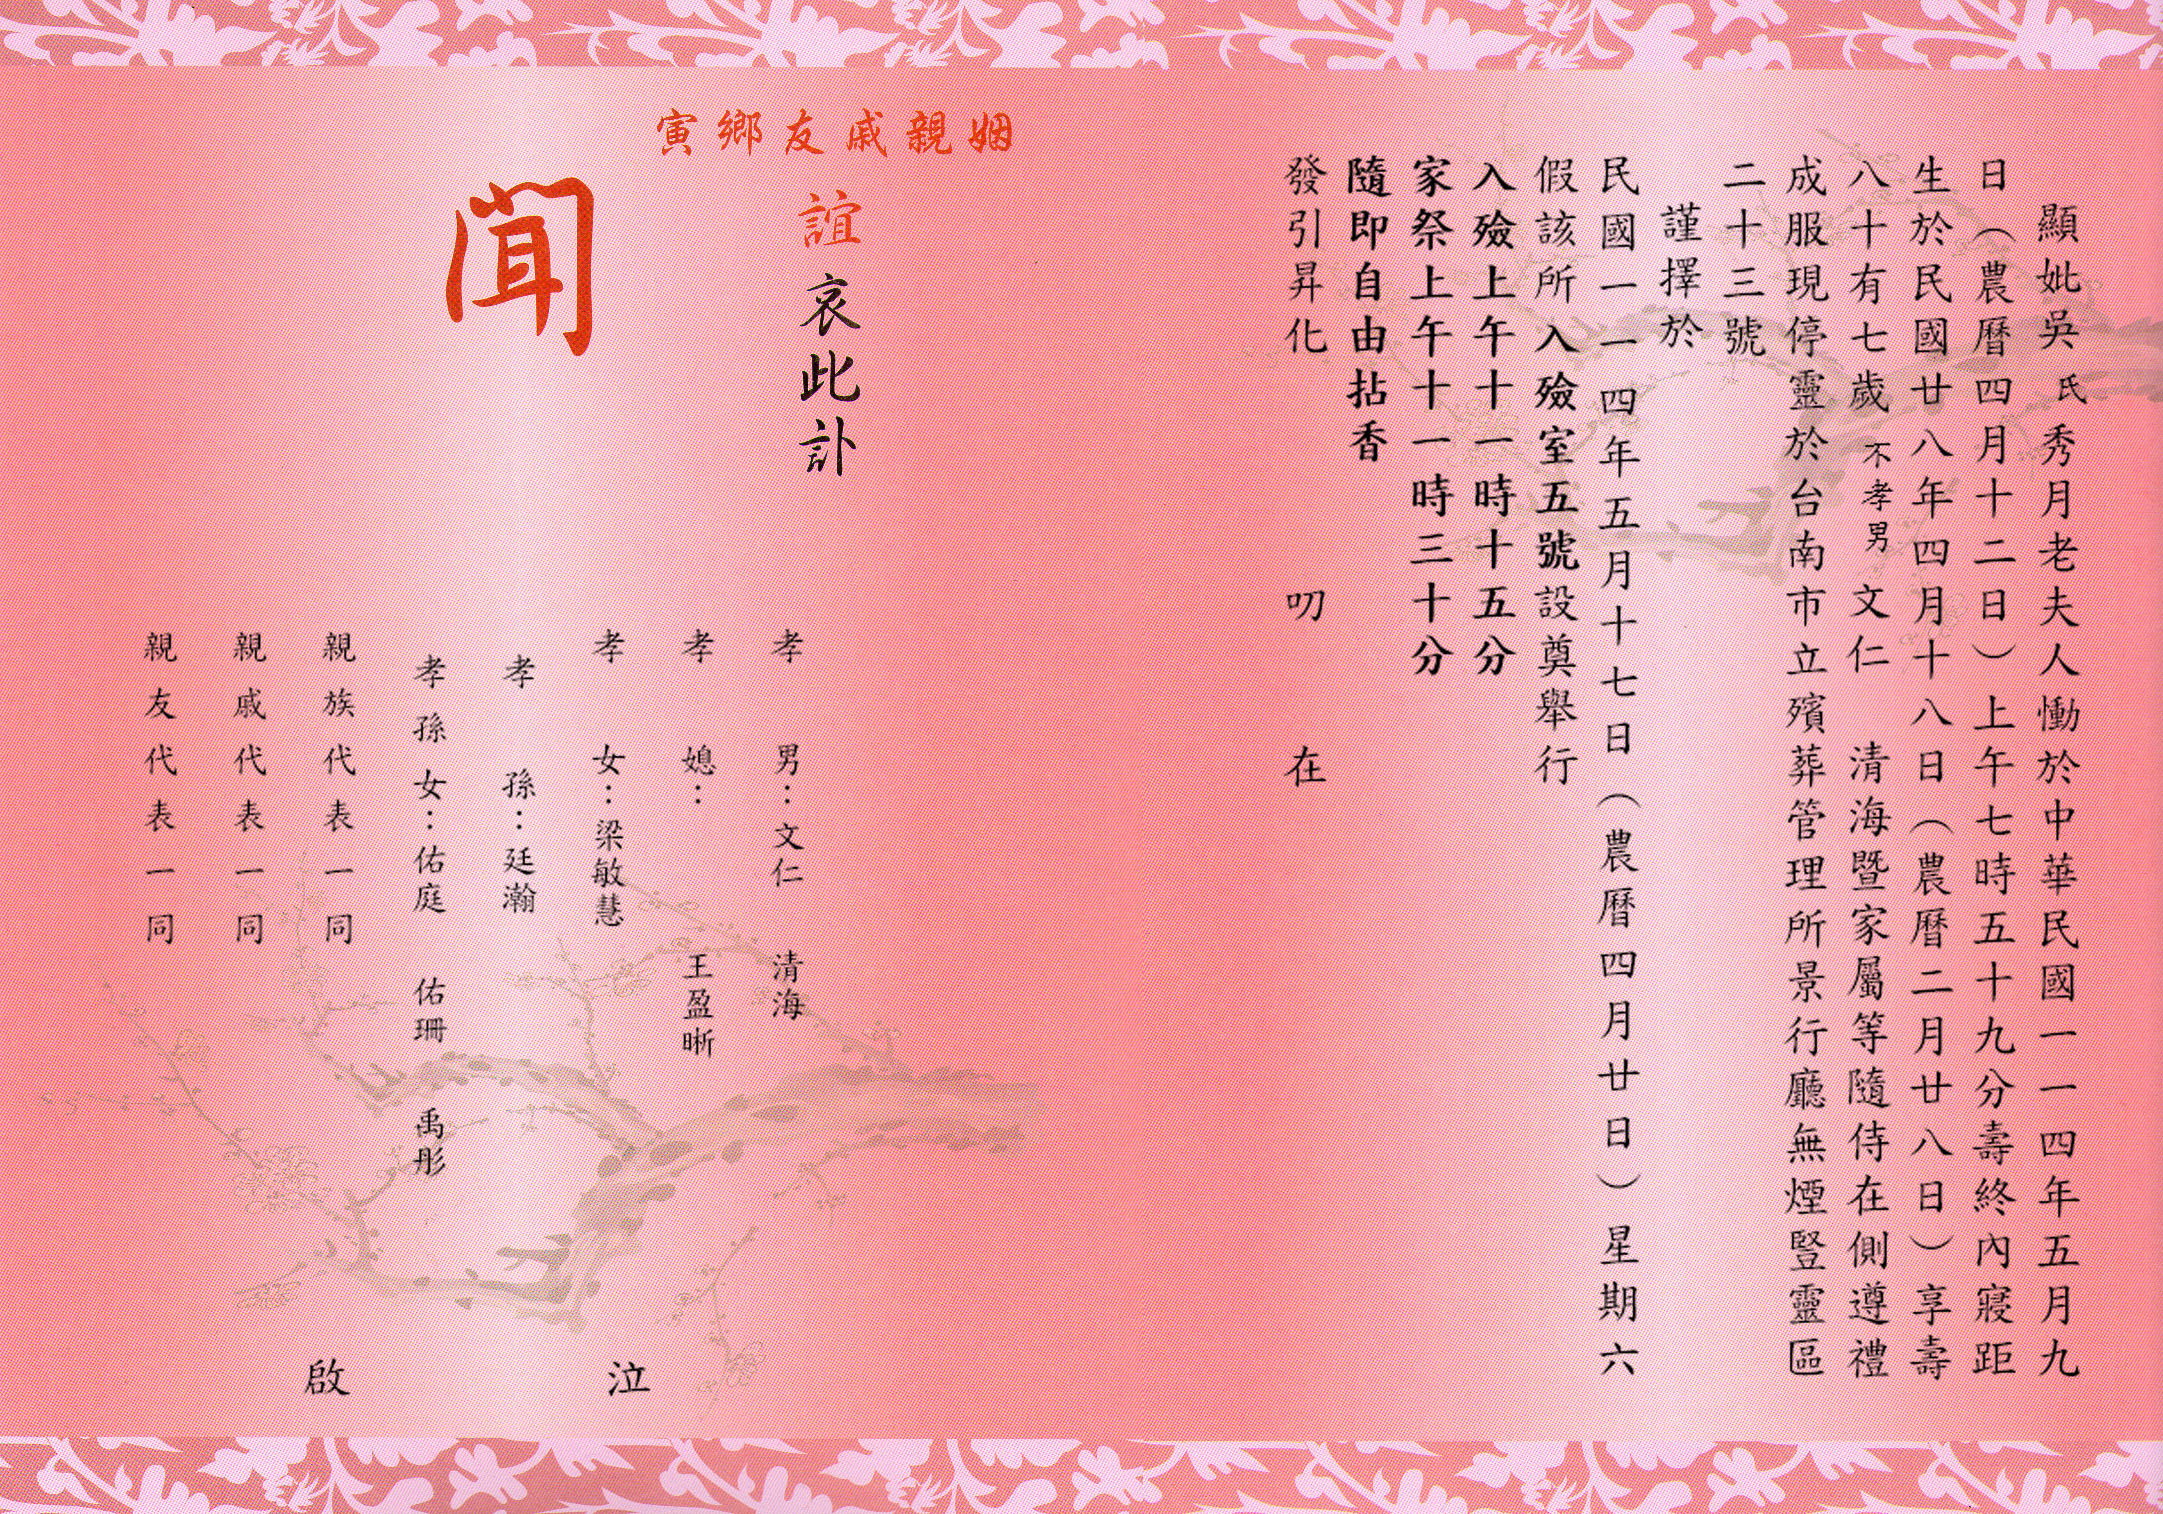 顯妣吳氏秀月老夫人慟於中華民國一一四年五月九
日（農曆四月十二日）上午七時五十九分壽終內寢距
生於民國廿八年四月十八日（農曆二月廿八日）享壽
八十有七歲不孝男文仁 清海暨家屬等隨侍在側遵禮
成服現停靈於台南市立殯葬管理所景行廳無煙豎靈區
二十三號
謹擇於
民國一一四年五月十七日（農曆四月廿日）星期六
假該所入殮室五號設奠舉行
入殮上午十一時十五分
家祭上午十一時三十分
隨即自由拈香
發引昇化 叨在
姻親戚友鄉寅
誼哀此訃
聞
孝男：文仁 清海
孝媳： 王盈晰
孝女：梁敏慧
孝孫：廷瀚
孝孫女：佑庭 佑珊 禹彤
親族代表一同
親戚代表一同
親友代表一同
泣啟